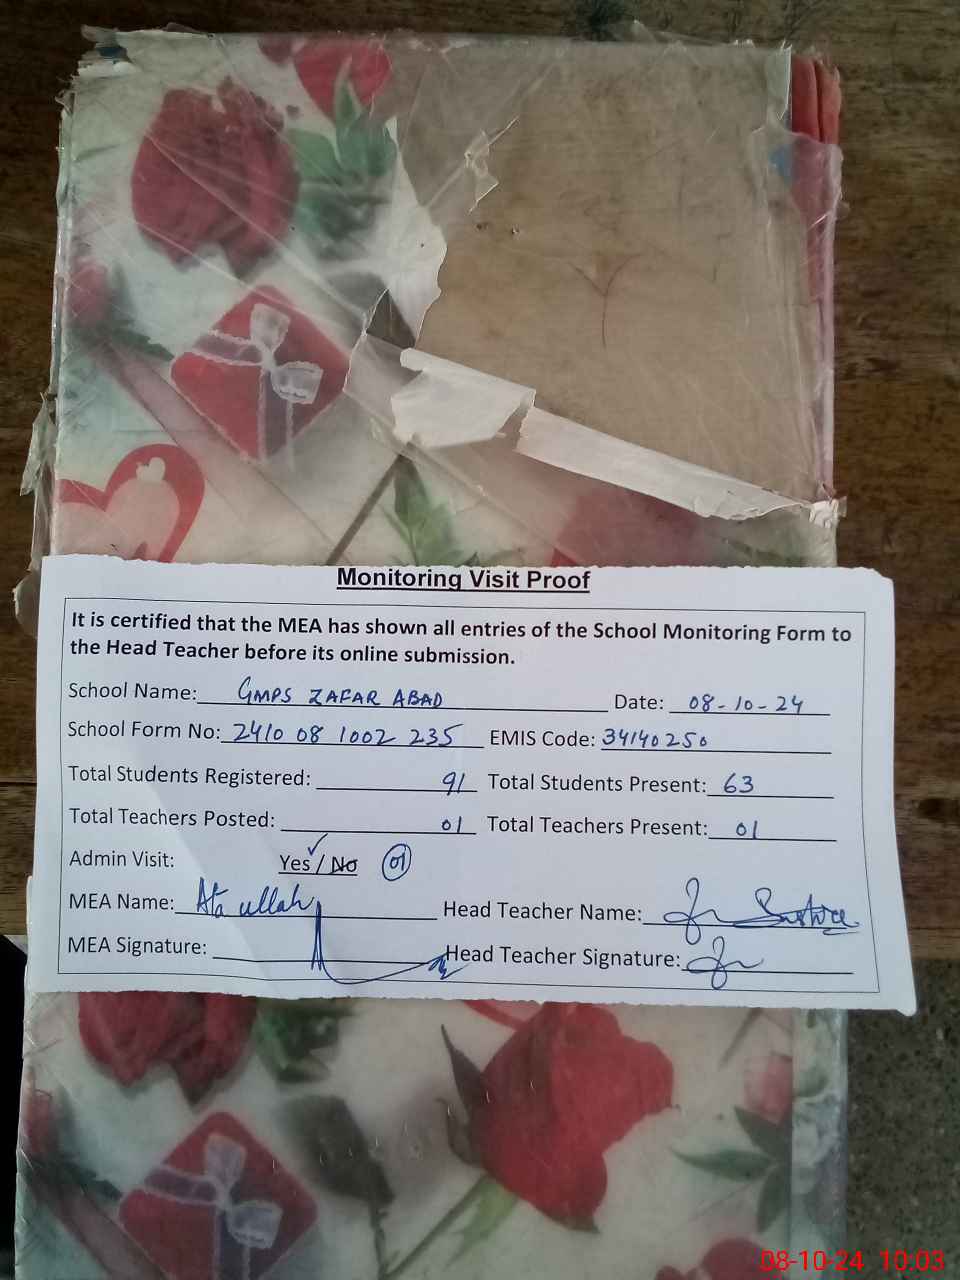 Monitoring Visit Proof
It is certified that the MEA has shown all entries of the School Monitoring Form to
the Head Teacher before its online submission.
School Name: GMPS ZAFAR ABAD Date: 08-10-24
School Form No: 2410 08 1002 235 EMIS Code: 34140250
Total Students Registered: 91 Total Students Present: 63
Total Teachers Posted: 01 Total Teachers Present: 01
Admin Visit: Yes / No 01
MEA Name: Ata ullah Head Teacher Name:
MEA Signature: Head Teacher Signature:
08-10-24 10:03